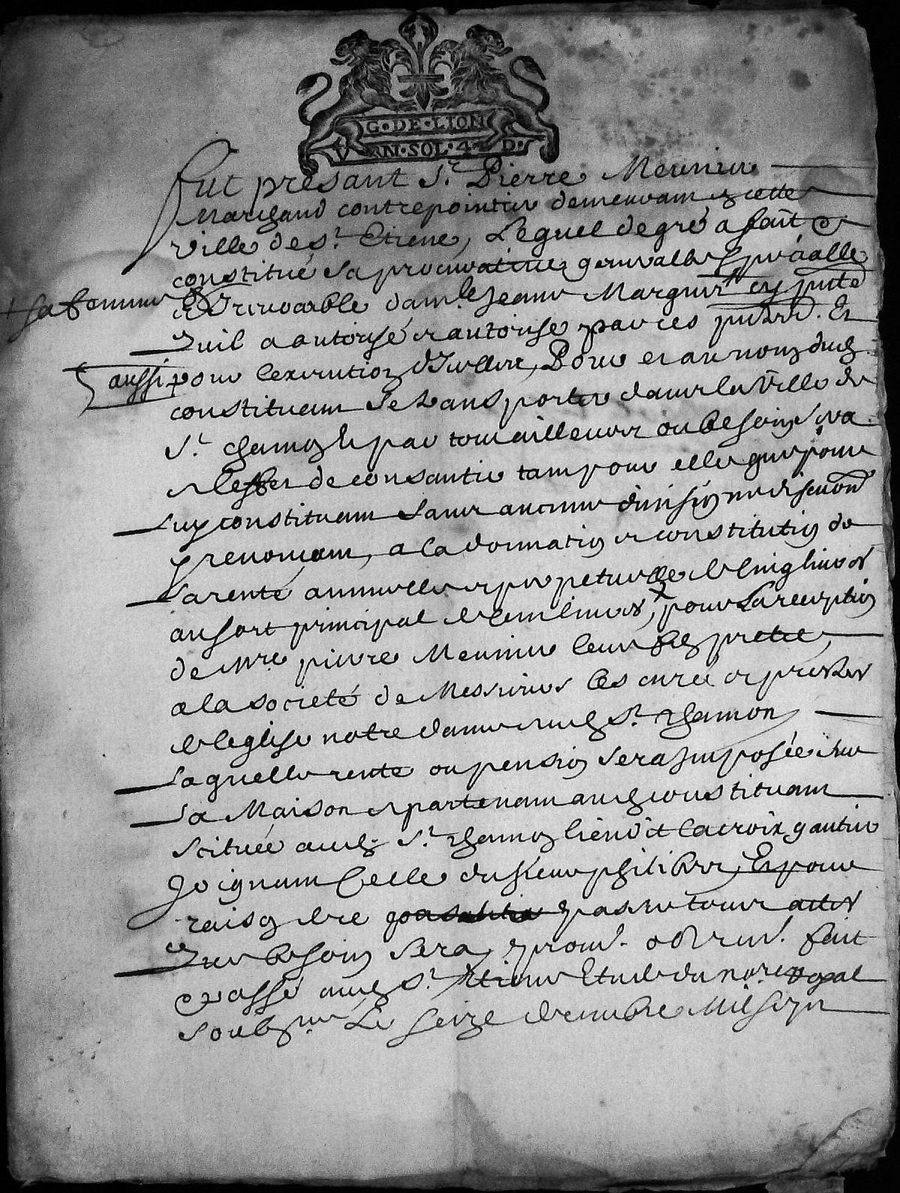 G·DE·LION
VN·SOL·4·D·
Fut présant Sr. Pierre Meunier
Marchand contrepointier demeurant en cette
ville de St. Etiene, Lequel de gré a fait et
constitué sa procuratrice generalle specialle
sa femme
et irrevocable damlle Jeanne Marguerit cy pnte
quil a autorisé et autorise par ces pntes. Et
aussi
pour lexecution dicelle, Pour et au nom dud
constituant se transporter dans la ville de
St. chamond par tout ailleurs ou besoin sera
a leffet de consantir tam pour elle que pour
luy constituant sans aucune division ne discution
y renoncant, a la donnation et constitution de
la rente annuelle et perpetuelle de cinq livres
au sort principal de cent livres, pour la reception
de Mre. pierre Meunier leur fils pretre
a la societé de Messieurs les curé et pretres
de leglise notre dame dud St. chamon
Laquelle rente ou pension sera imposée sur
sa Maison apartenant aud constituant
scituée aud St. chamon lieu dit lacroix gautier
Joignant celle du sieur philibert, Et pour
raison de ce passer tous actes
que besoin sera, prom. oblig. fait
et passé aud St. Etienne Etude du nore. royal
soubsne Le seize decembre Mil sept